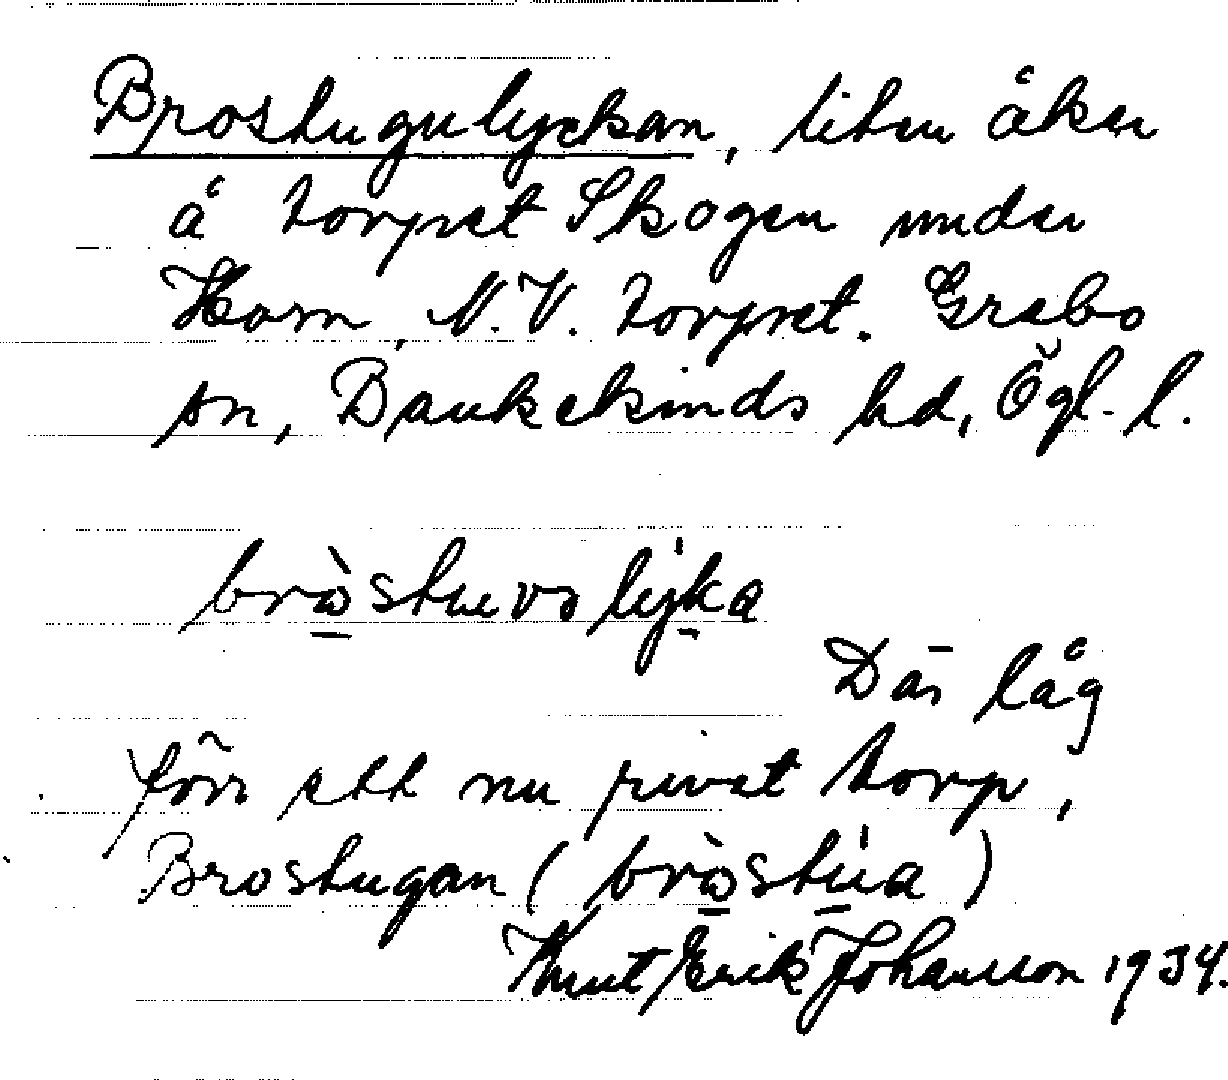 Brostugulyckan, liten åker
å torpet Skogen under
Horn, N.V. torpet. Grebo
sn, Bankekinds hd, Ögl. l.
brὼstuevoly̍ka
Där låg
förr ett nu rivet torp,
Brostugan (brὼstu̍a)
Knut Erik Johansson 1934.